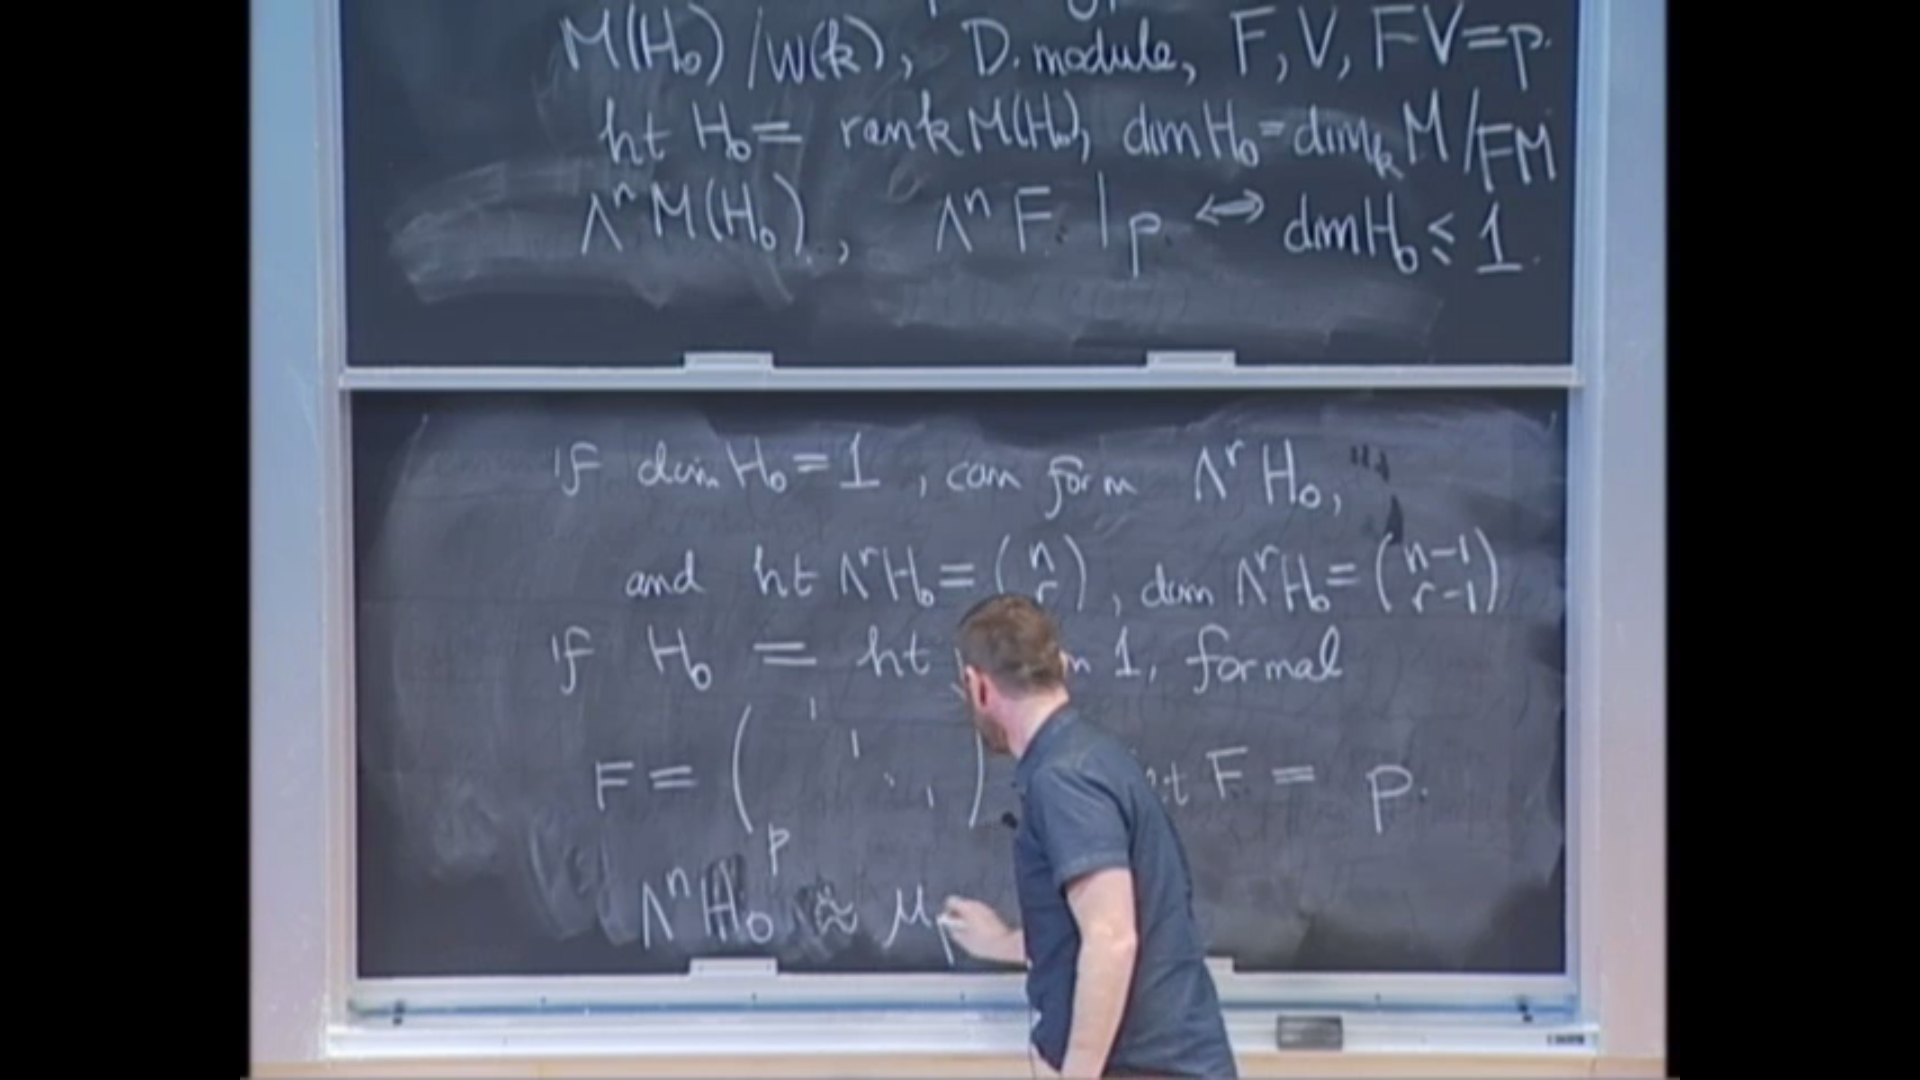 M(H₀)/W(k), D. module, F, V, FV=p.
ht H₀ = rank M(H₀), dim H₀ = dimₖ M/FM
Λʳ M(H₀), Λⁿ F | p ↔ dim H₀ ≤ 1.
if dim H₀ = 1, can form Λʳ H₀,
and ht Λʳ H₀ = (n r), dim Λʳ H₀ = (n-1 r-1)
if H₀ = ht 1, formal
F = ( 1 1 ⋱ 1 p ) F = p.
Λⁿ H₀ ≈ μp